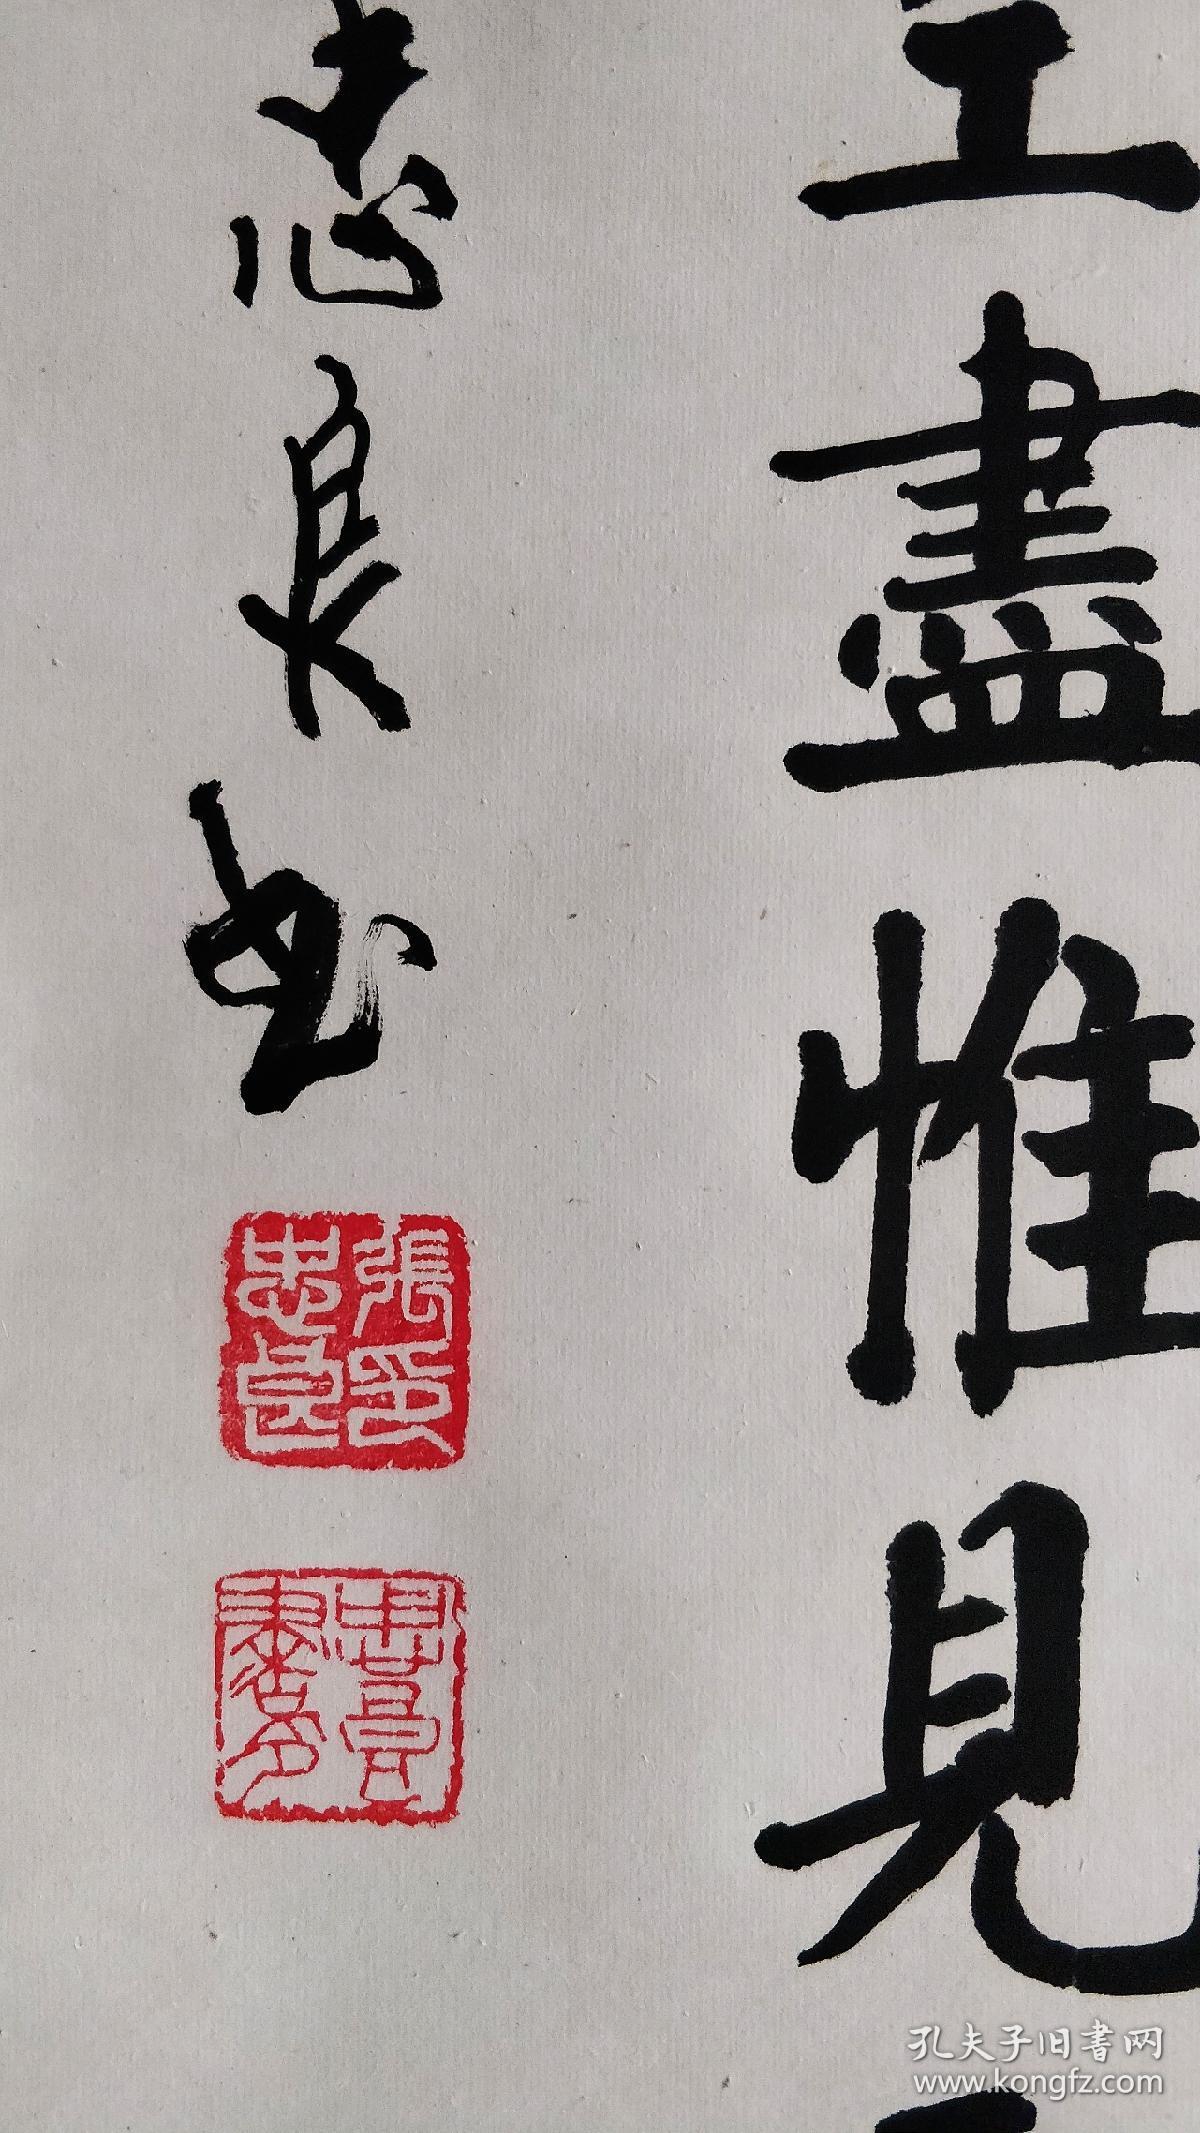 空盡惟見
忠良书
張印
忠良
孔夫子旧書网
www.kongfz.com